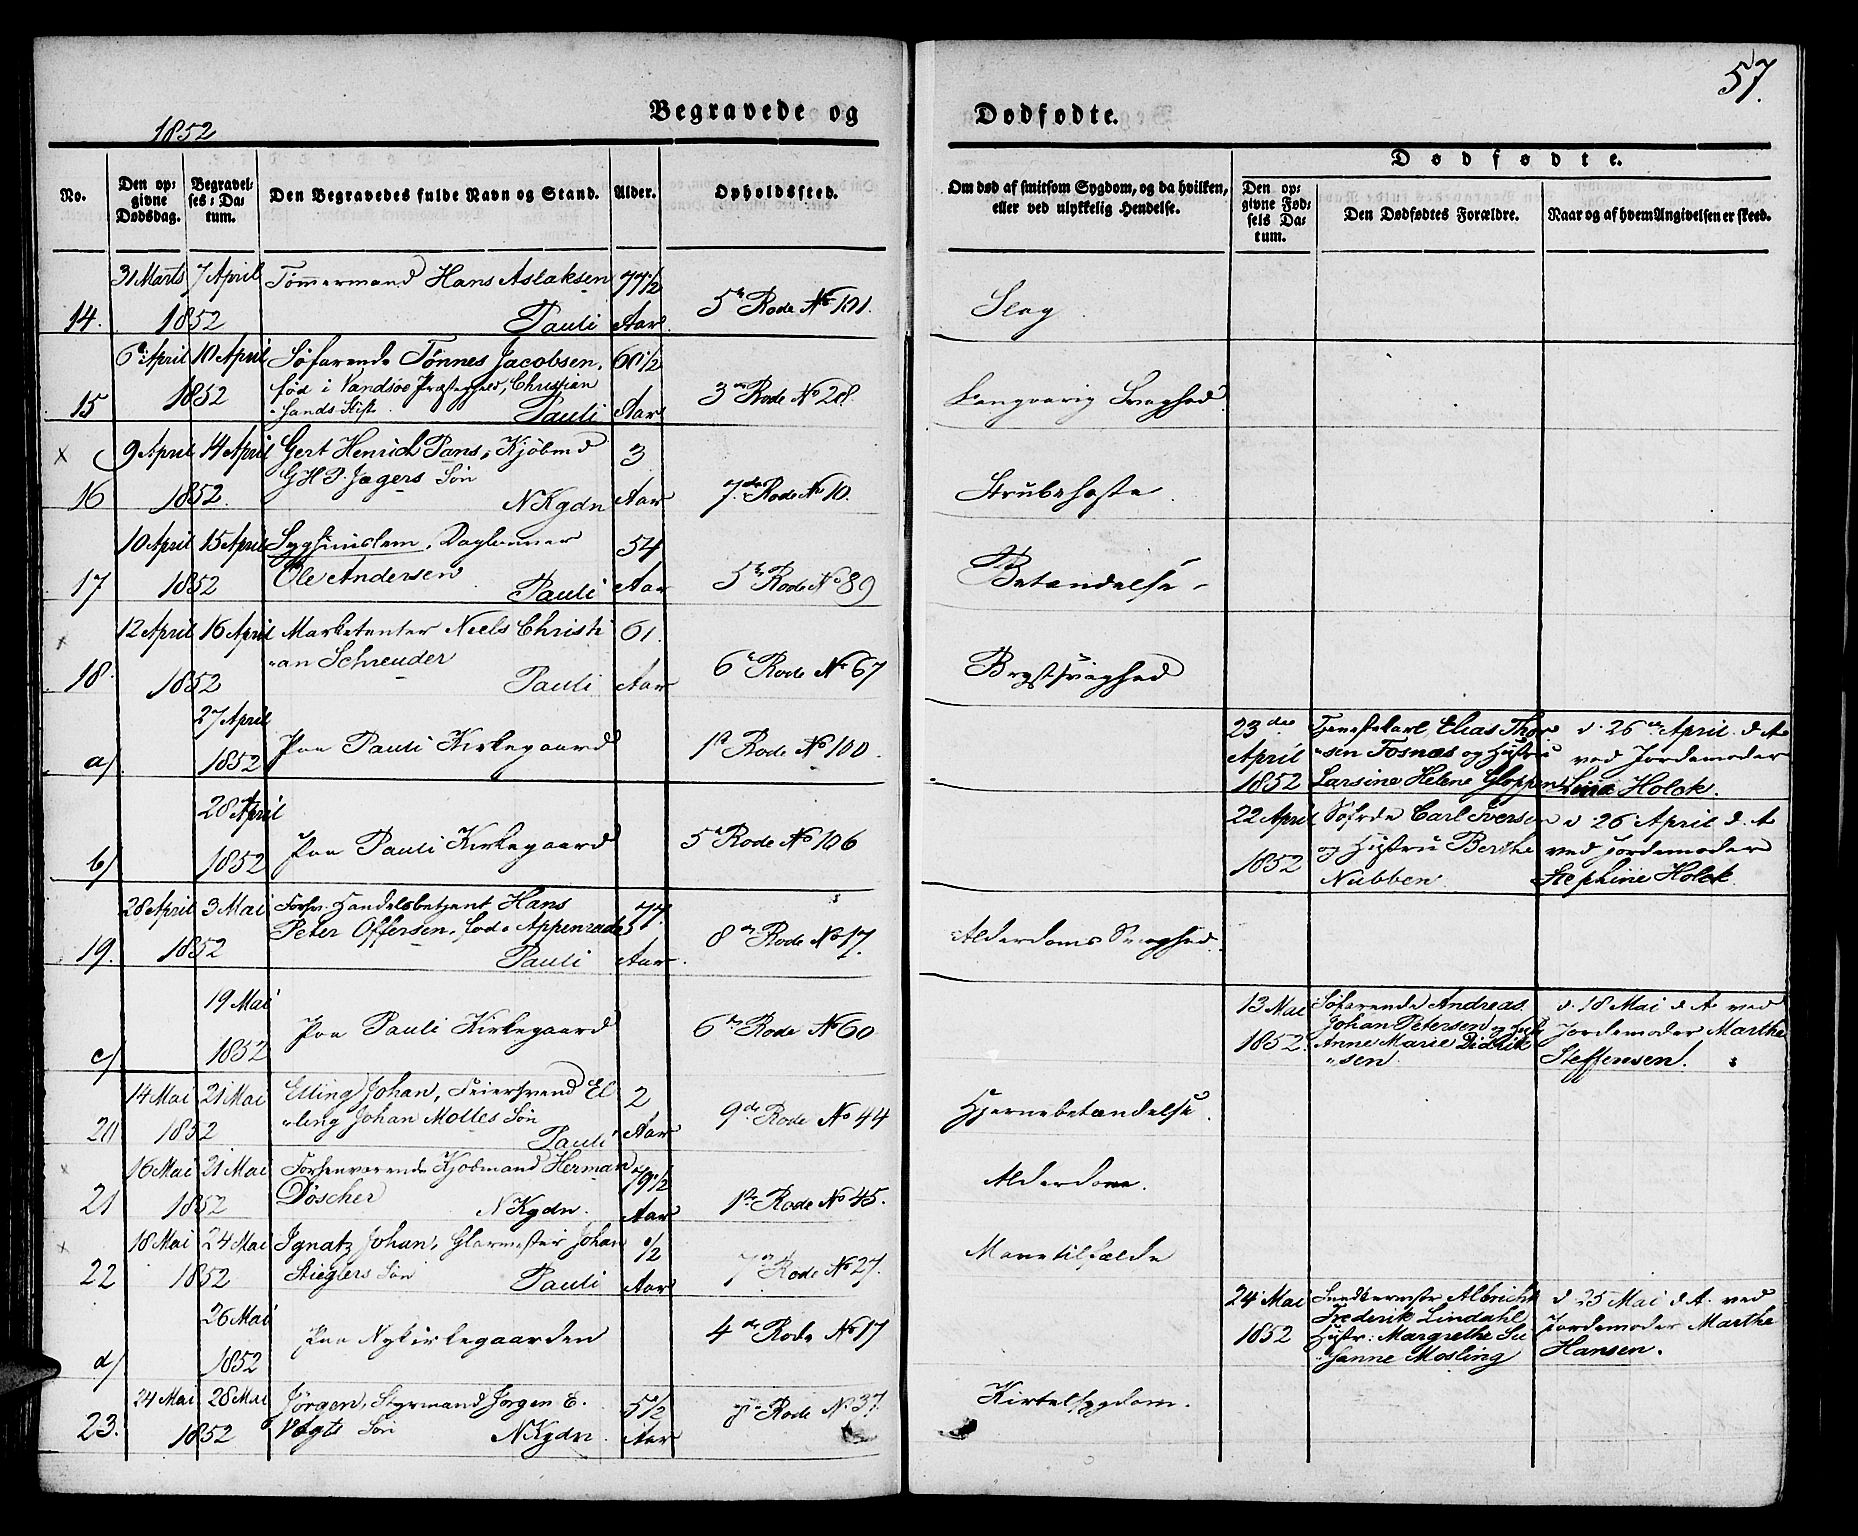 57.
1852
Begravede og Dødfødte.
No.
Den opgivne Dødsdag.
Begravelses-Datum.
Den Begravedes fulde Navn og Stand.
Alder.
Opholdssted.
Om død af smitsom Sygdom, og da hvilken,
eller ved ulykkelig Hendelse.
Dødfødte.
Den opgivne Fødsels Datum.
Den Dødfødtes Forældre.
Naar og af hvem Angivelsen er skeed.
14. 31 Marts 7 April 1852
Tømmermand Hans Aslaksen
Pauli
77 1/2 Aar
5te Rode No 101.
Slag
15 6 April 10 April 1852
Søfarende Tønnes Jacobsen,
fød i Vandsøe Præstegjeld, Christian
"sands Stift
Pauli
60 1/2 Aar
3die Rode No 28.
Langvarig Svaghed
x 16 9 April 14 April 1852.
Gert Henrich Pans, Kjøbmd
G H P. Jægers Søn
NKgdn
3 Aar
7de Rode No 10.
Strubehoste
17 10 April 15 April 1852
Syghuuslem, Dagleunner
Ole Andersen
Pauli
54 Aar
5te Rode No 89
Betændelse
x 18. 12 April 16 April 1852
Marketenter Niels Christi
"an Schreuder
Pauli
61. Aar
6te Rode No 67
Brystsvaghed
a) 27 April 1852
Paa Pauli Kirkegaard
1ste Rode No 100.
23de April 1852
Tjenestekarl Elias Thor
"sen Fosnæs og Hustru
Larsine Helene Gloppen
d. 26de April d. A
ved Jordemoder
Lina Holck.
b) 28 April 1852
Paa Pauli Kirkegaard
5te Rode No 106
22 April 1852
Søfrde Carl Iversen
og Hustru Berthe
Nubben
d 26 April d. A
ved Jordemoder
Stephine Holck
19. 28 April 3 Mai 1852
Forhv. Handelsbetjent Hans
Peter Offersen, fød i Appenrade
Pauli
77. Aar.
8de Rode No 17.
Alderdoms Svaghed
c) 19 Mai 1852
Paa Pauli Kirkegaard
6te Rode No 60
13 Mai 1852.
Søfarende Andreas
Johan Petersen og Hust
Anne Marie Didrik
"sen
d. 18 Mai d. A ved
Jordemoder Marthe
Steffensen.
20 14 Mai 21 Mai 1852
Elling Johan, Feiersvend El
"ling Johan Moltes Søn
Pauli
2 Aar
9de Rode No 44
Hjernebetændelse.
x 21 16 Mai 21 Mai 1852
Forhenværende Kjøbmand Herman
Døscher
NKgdn.
79 1/2 Aar
1ste Rode No 45.
Alderdom.
x 22 18 Mai 24 Mai 1852
Ignatz Johan, Glarmester Johan
Stieglers Søn
Pauli
1/2 Aar
7de Rode No 27.
Mavetilfælde
d) 26 Mai 1852
Paa Nykirkegaarden
4de Rode No 17
24 Mai 1852
Albricht
Frederik Lindahl
Hustr: Margrethe Su
"sanne Mosling
d. 25 Mai d. A. ved
Jordemoder Marthe
Hansen.
23. 24 Mai 28 Mai 1852
Jørgen, Styrmand Jørgen E.
Vogts Søn
NKgdn.
5 1/2 Aar
Rode No 37.
Kirtelsygdom.